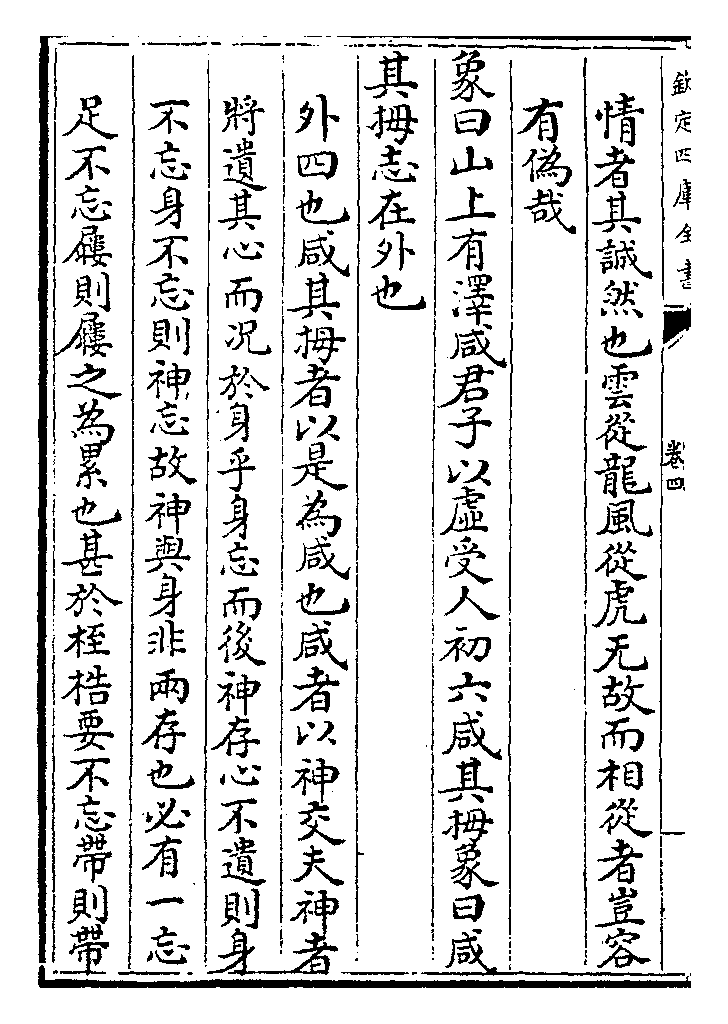 欽定四庫全書
卷四
情者其誠然也雲從龍風從虎无故而相從者豈容
有偽哉
象曰山上有澤咸君子以虛受人初六咸其拇象曰咸
其拇志在外也
外四也咸其拇者以是為咸也咸者以神交夫神者
將遺其心而况於身乎身忘而後神存心不遺則身
不忘身不忘則神忘故神與身非兩存也必有一忘
足不忘屨則屨之為累也甚於桎梏要不忘帶則帶